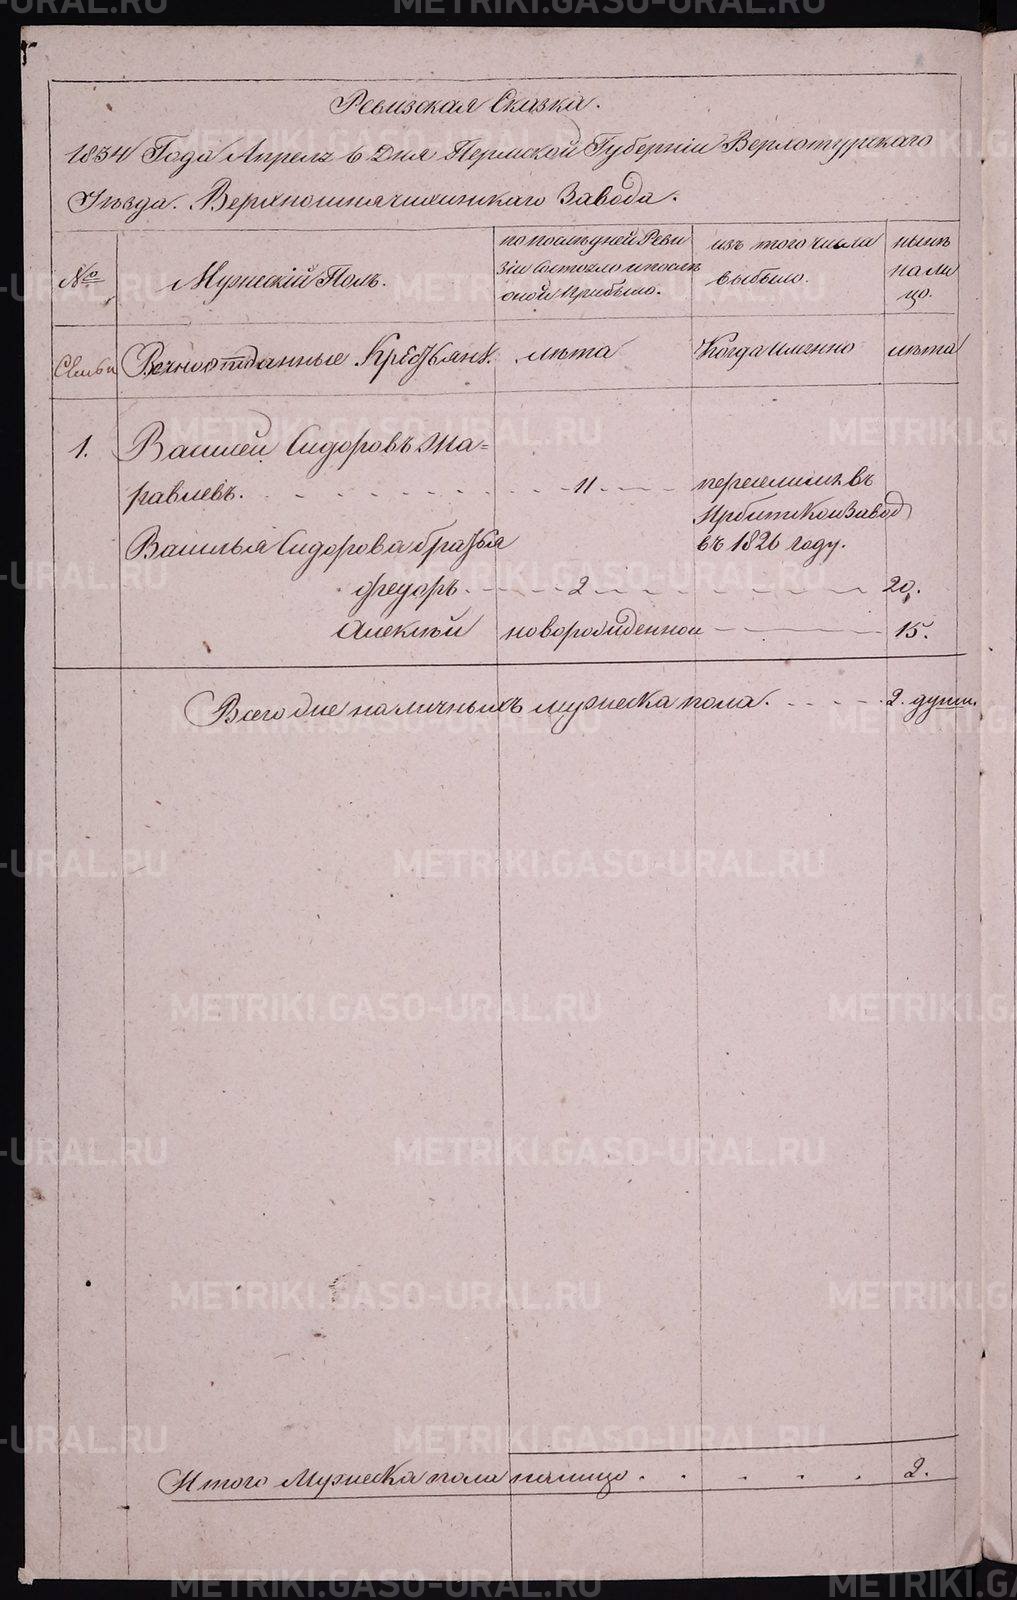 Ревизская Сказка.
1834 Года Апреля 6 Дня Пермской Губерніи Верхотурскаго
Уѣзда. Верхнош Завода.
№
Мужескій Полъ.
по послѣдней Реви
зіи Состояло и послѣ
оной прибыло.
изъ того числа
выбыло.
нынѣ
на ли
цо.
Семьи
Вечноотданные Крестьянѣ.
лѣта
Когда именно
лѣта
1.
Василей Сидоровъ Жа=
равлевъ. 11
переселилъ въ
Ирбитской Завод
въ 1826 году.
Василья Сидорова братья
Федоръ. 2 20.
Алексѣй новорожденной 15.
Всего наличныхъ мужеска пола. 2. души.
Итого Мужеска пола налицо. 2.
METRIKI.GASO-URAL.RU